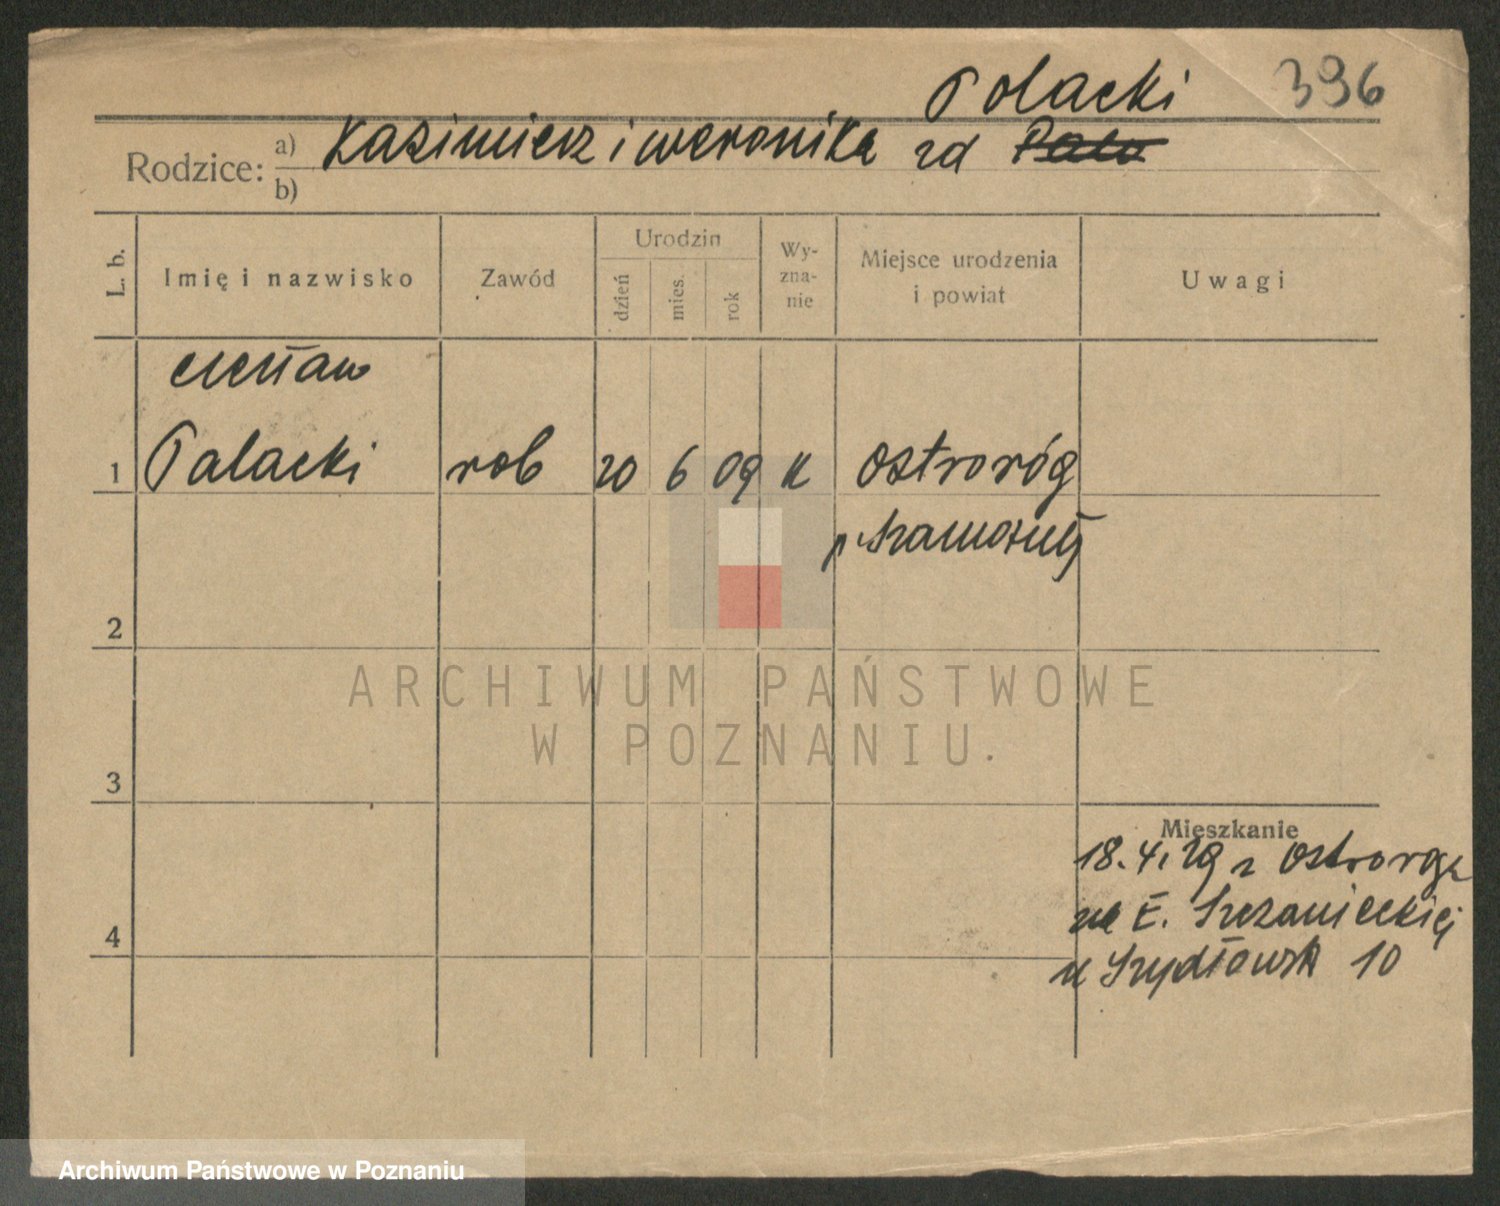 Polacki 396
Rodzice: a) Kazimierz i Weronika zd Pala
b)
L. b. Imię i nazwisko Zawód Urodzin dzień mies. rok Wyznanie Miejsce urodzenia i powiat Uwagi
Czesław
1 Palacki rob 20 6 09 K Ostroróg
p Szamotuły
2
3
Mieszkanie
18.4.29 z Ostroroga
na F. Szczanieckiej
4
u Szydłowsk 10
ARCHIWUM PAŃSTWOWE
W POZNANIU.
Archiwum Państwowe w Poznaniu